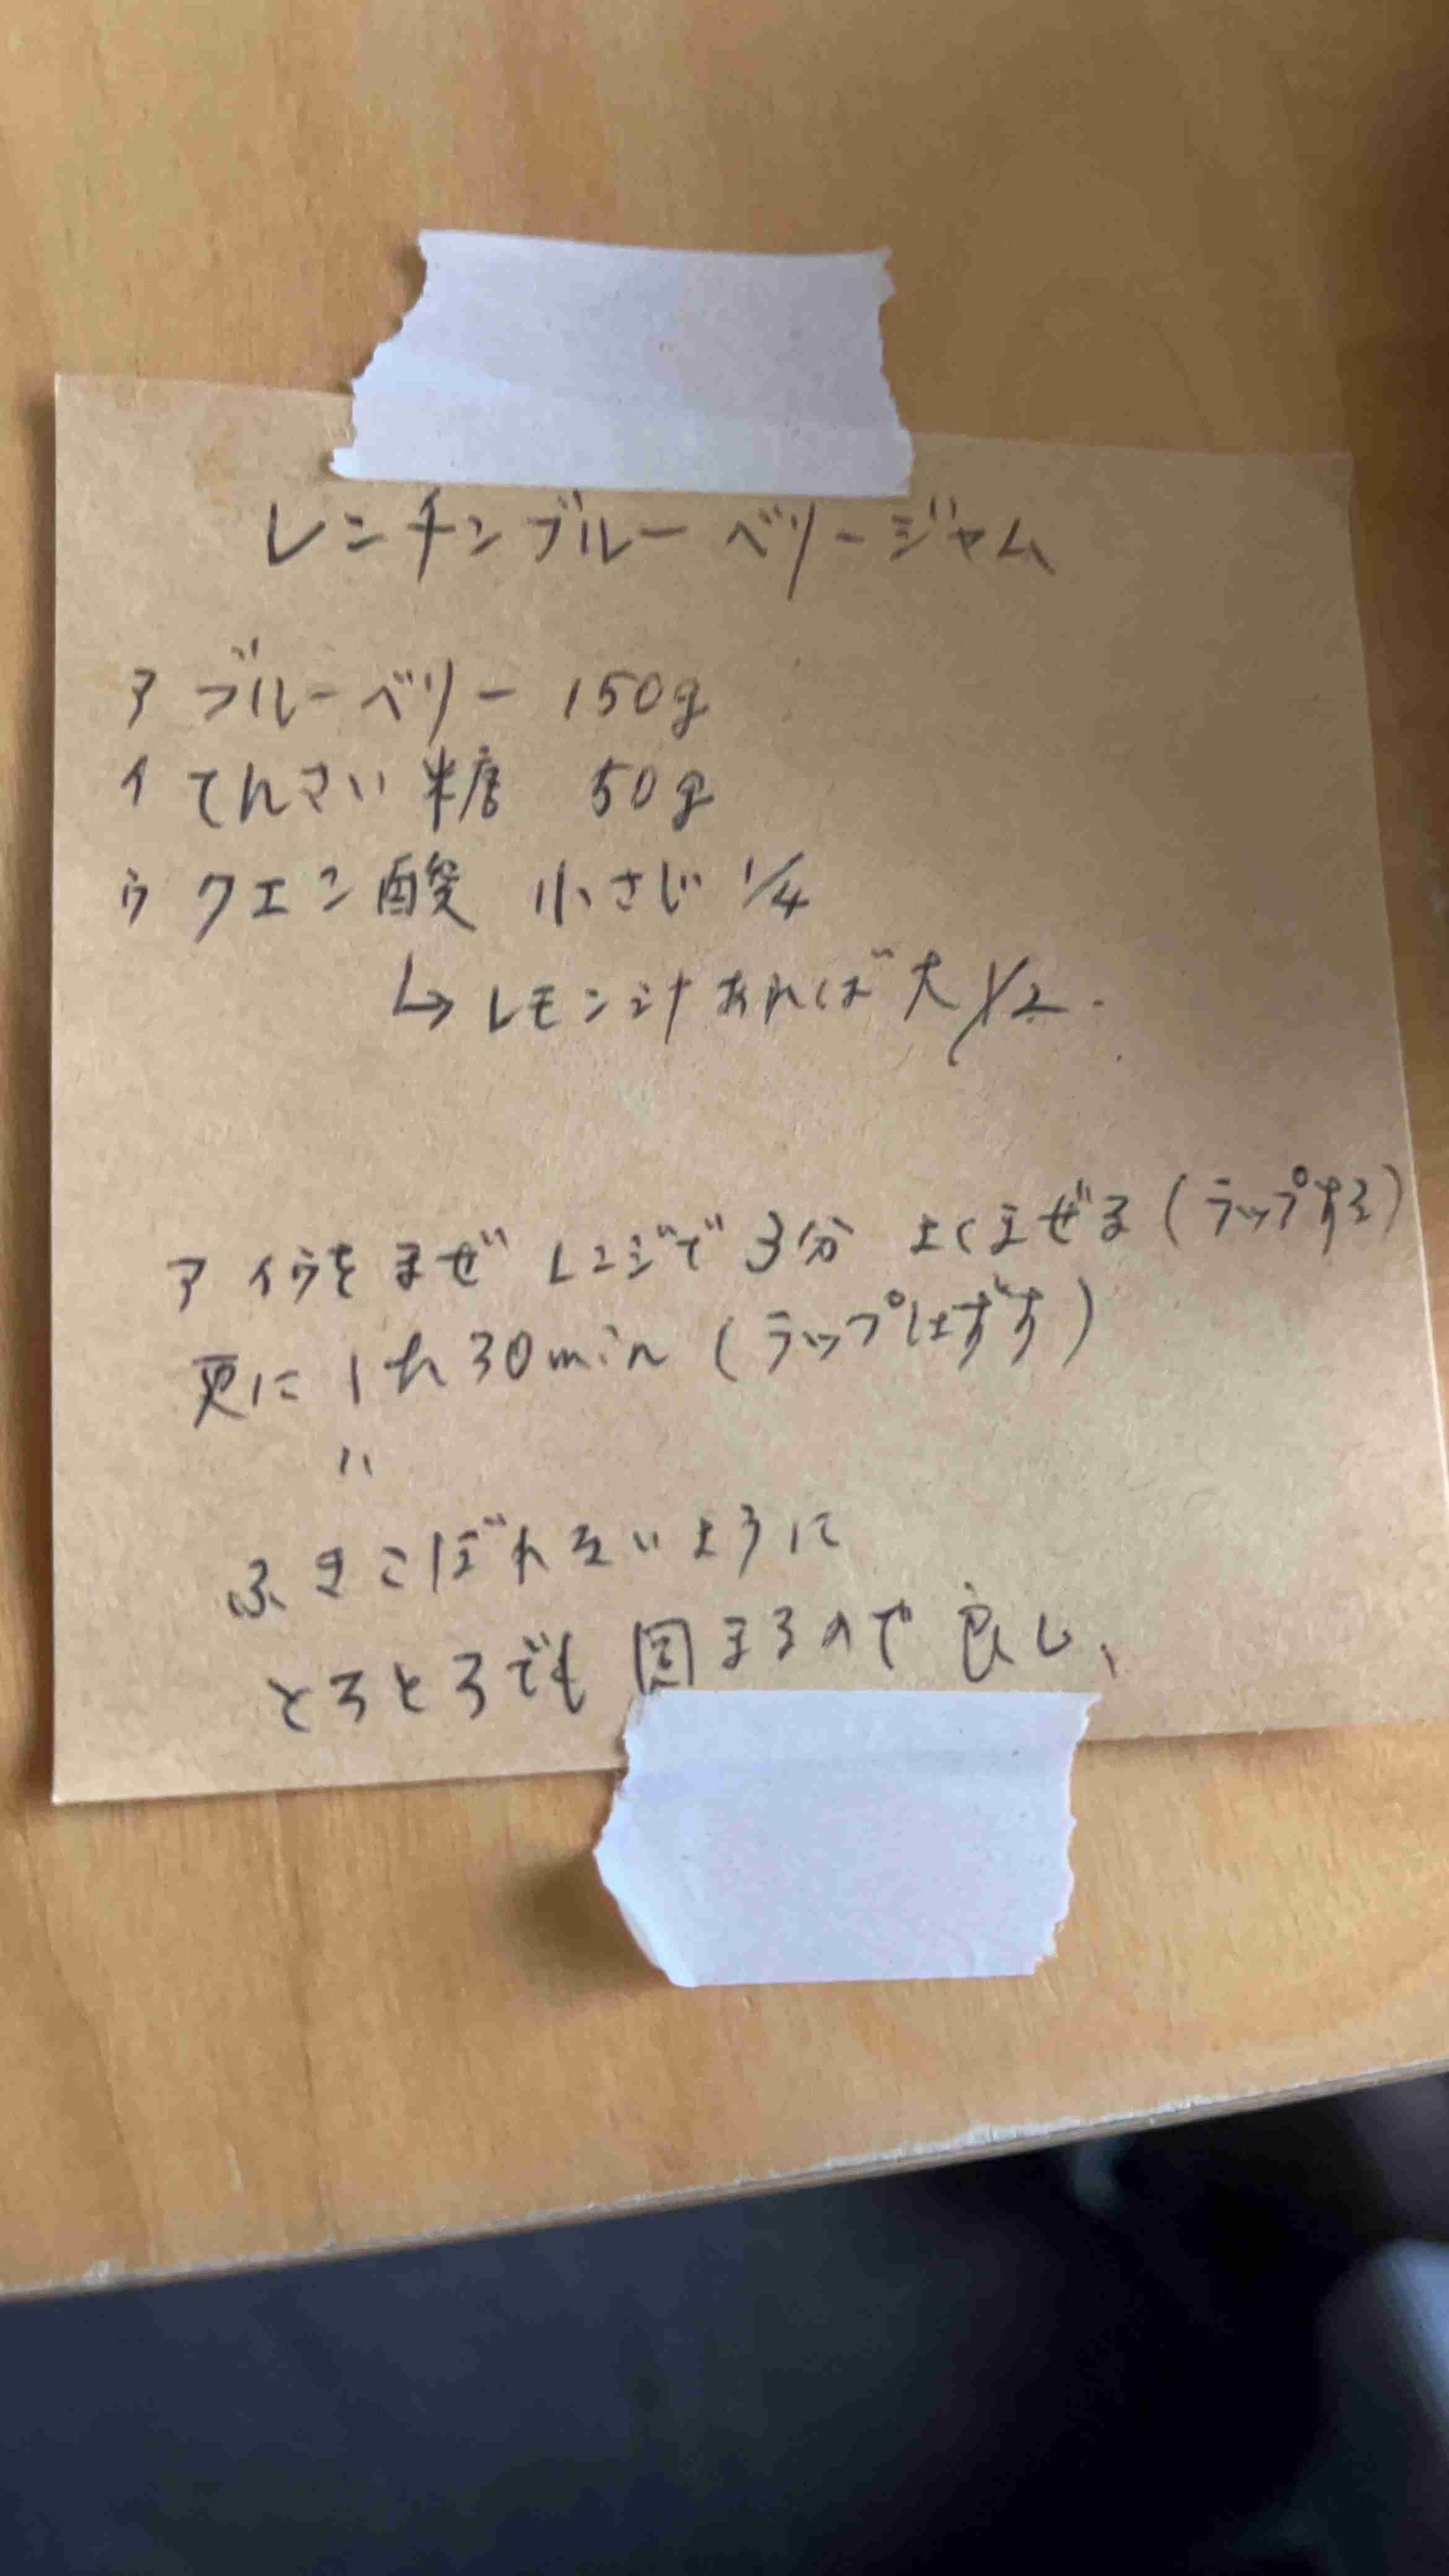 レンチンブルーベリージャム
ア ブルーベリー 150g
イ てんさい糖 50g
ウ クエン酸 小さじ 1/4
↳ レモン汁あれば 大 1/2.
ア イウを まぜ レンジで 3分 よくまぜる (ラップする)
更に 1h 30min (ラップはずす)
〃
ふきこぼれないように
とろとろでも 固まるので 良し、